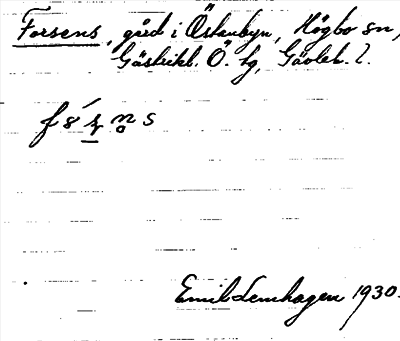 Forsens, gård i Östanbyn, Högbo sn,
Gästrikl. Ö. tg, Gävleb. l.
Emil Lemhagen 1930.